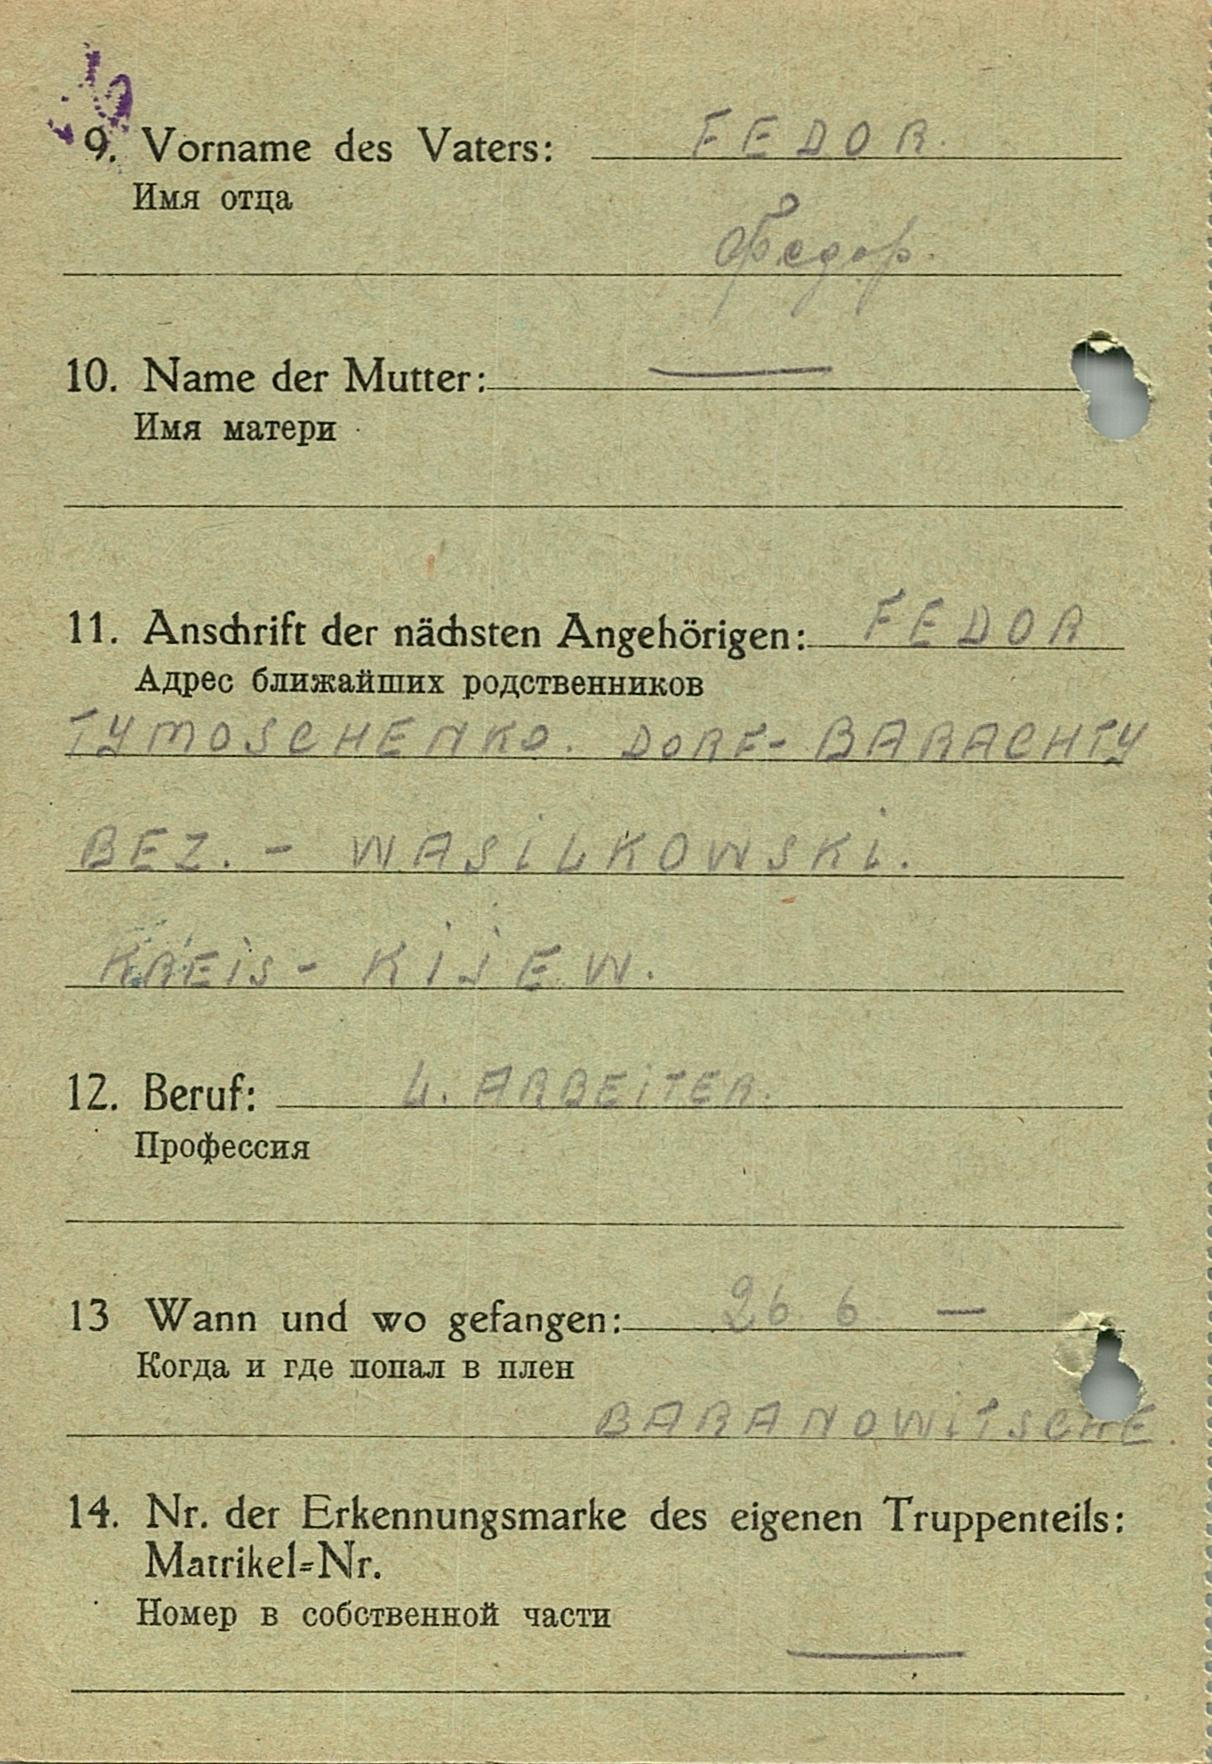 9. Vorname des Vaters: FEDOR.
Имя отца
Федор.
10. Name der Mutter: —
Имя матери
11. Anschrift der nächsten Angehörigen: FEDOR
Адрес ближайших родственников
TYMOSCHENKO. DORF- BARACHTY
BEZ. - WASiLKOWSKi.
KREiS - KiJEW.
12. Beruf: L. ARBEiTER.
Профессия
13 Wann und wo gefangen: 26. 6. —
Когда и где попал в плен
BARANOWiTSCHE.
14. Nr. der Erkennungsmarke des eigenen Truppenteils:
Matrikel=Nr.
Номер в собственной части
—